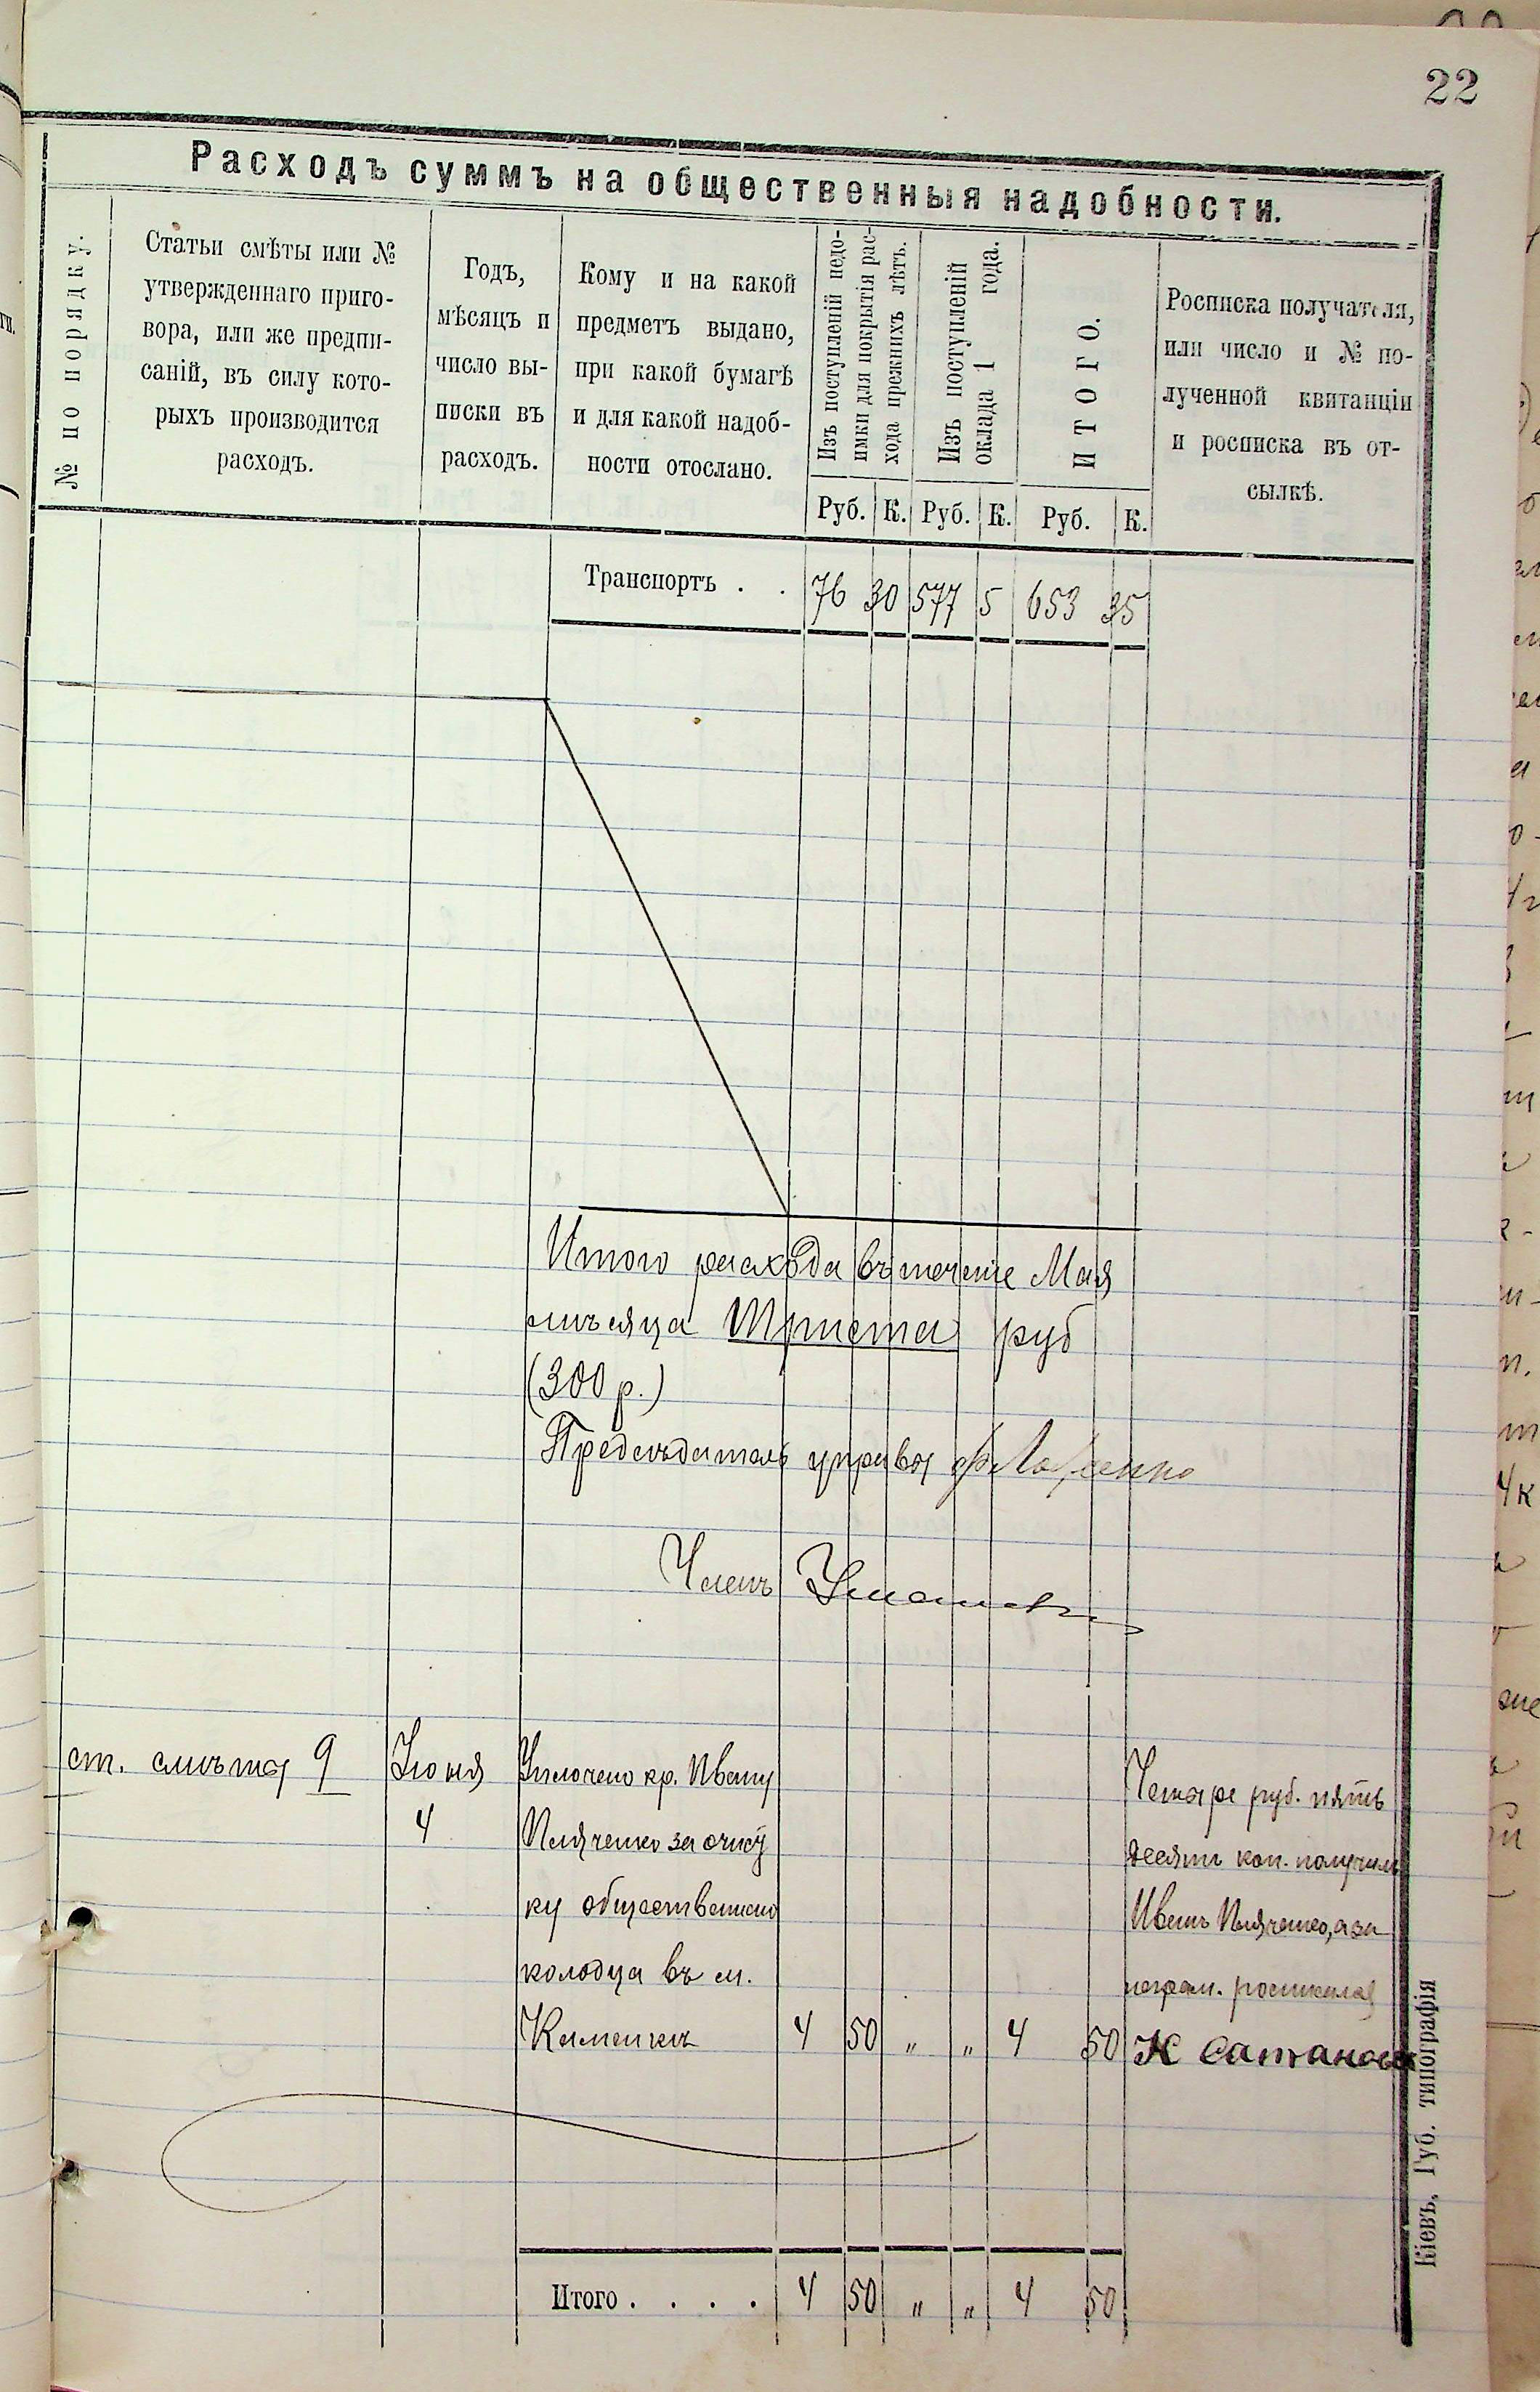 22
Расходъ суммъ на общественныя надобности.
№ по порядку.
Статьи смѣты или №
утвержденнаго приго-
вора, или же предпи-
саній, въ силу кото-
рыхъ производится
расходъ.
Годъ,
мѣсяцъ и
число вы-
писки въ
расходъ.
Кому и на какой
предметъ выдано,
при какой бумагѣ
и для какой надоб-
ности отослано.
Изъ поступленій недо-
имки для покрытія рас-
хода прежнихъ лѣтъ.
Изъ поступленій
оклада 1 года.
ИТОГО.
Росписка получателя,
или число и № по-
лученной квитанціи
и росписка въ от-
сылкѣ.
Руб. К. Руб. К. Руб. К.
Транспортъ . . 76 30 577 5 653 35
Итого расхода въ течение Мая
мѣсяца Триста руб
(300 р.)
Предсѣдатель управы
Членъ
ст. смѣты 9 Июня Уплочено кр. Ивану Четыре руб. пять
4 за очист десятъ коп. получилъ
ку общественного Иванъ а за
колодца въ м. неграм. росписался
Каменкѣ 4 50 „ „ 4 50 К Сатановск
Итого . . . . 4 50 „ „ 4 50
Кіевъ, Губ. типографія